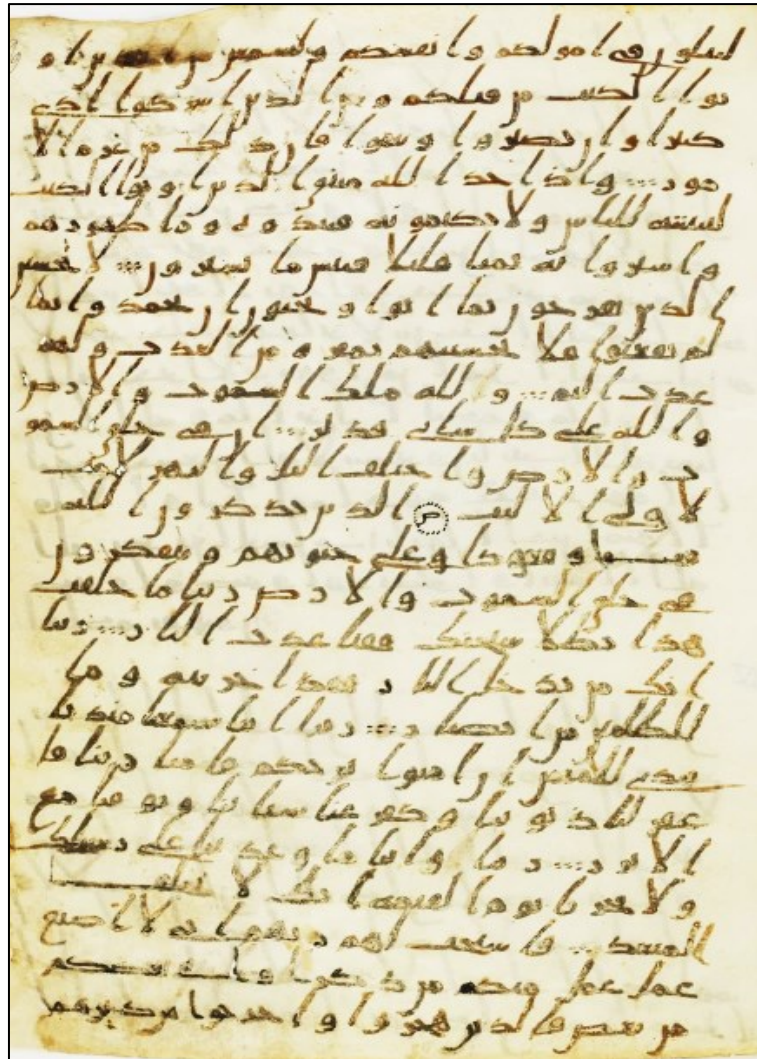 لتبلون في امولكم وانفسكم ولتسمعن من الذين او
توا الكتب من قبلكم ومن الذين اشركوا اذى
كثيرا وان تصبروا وتتقوا فان ذلك من عزم الا
مور واذ اخذ الله ميثق الذين اوتوا الكتب
لتبيننه للناس ولا تكتمونه فنبذوه ورا ظهورهم
واشتروا به ثمنا قليلا فبئس ما يشترون لا تحسبن
الذين يفرحون بما اتوا ويحبون ان يحمدوا بما
لم يفعلوا فلا تحسبنهم بمفزة من العذب ولهم
عذب اليم ولله ملك السموت والارض
والله على كل شاي قدير ان في خلق السمو
ت والارض واختلف اليل والنهر لايت
لاولي الالبب الذين يذكرون الله
قيما وقعودا وعلى جنوبهم ويتفكرون
في خلق السموت والارض ربنا ما خلقت
هذا بطلا سبحنك فقنا عذب النار ربنا
انك من تدخل النار فقد اخزيته وما
للظلمين من انصار ربنا اننا سمعنا منديا
يندي للايمن ان امنوا بربكم فامنا ربنا فا
غفر لنا ذنوبنا وكفر عنا سياتنا وتوفنا مع
الابرر ربنا واتنا ما وعدتنا على رسلك
ولا تخزنا يوم القيمة انك لا تخلف
الميعد فاستجب لهم ربهم اني لا اضيع
عمل عمل منكم من ذكر او انثى بعضكم
من بعض فالذين هجروا واخرجوا من ديرهم